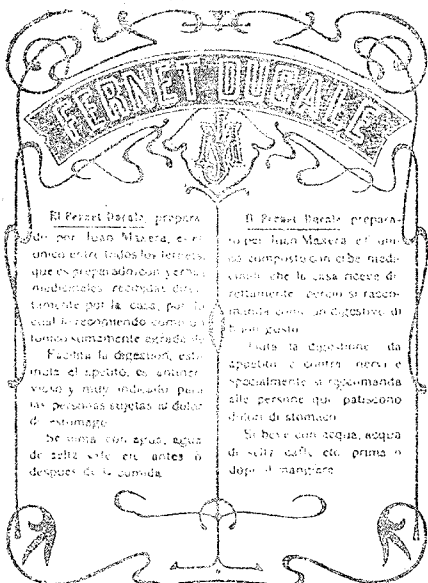 FERNET DUCALE
El Fernet Ducale, prepara-
do por Juan Maxera, es el
único entre todos los fernets,
que es preparado con yerbas
medicinales, recibidas direc-
tamente por la casa, por lo
cual lo recomiendo como un
tónico sumamente agradable
Facilita la digestion, esti-
mula el apetito, es antiner-
vioso y muy indicado para
las personas sujetas al dolor
de estómago
Se toma con agua, agua
de seltz café etc antes ó
despues de la comida
Il Fernet Ducale prepara-
to per Juan Maxera é l'
composto con erbe medi-
cinali che la casa riceve di-
rettamente perciò si racco-
manda come un digestivo di
buon gusto
Aiuta la digestione da
appetito é contro nervi e
specialmente si raccomanda
alle persone que patiscono
dolori di stomaco
Si beve con acqua, acqua
di seltz caffé, etc prima o
dopo il mangiare